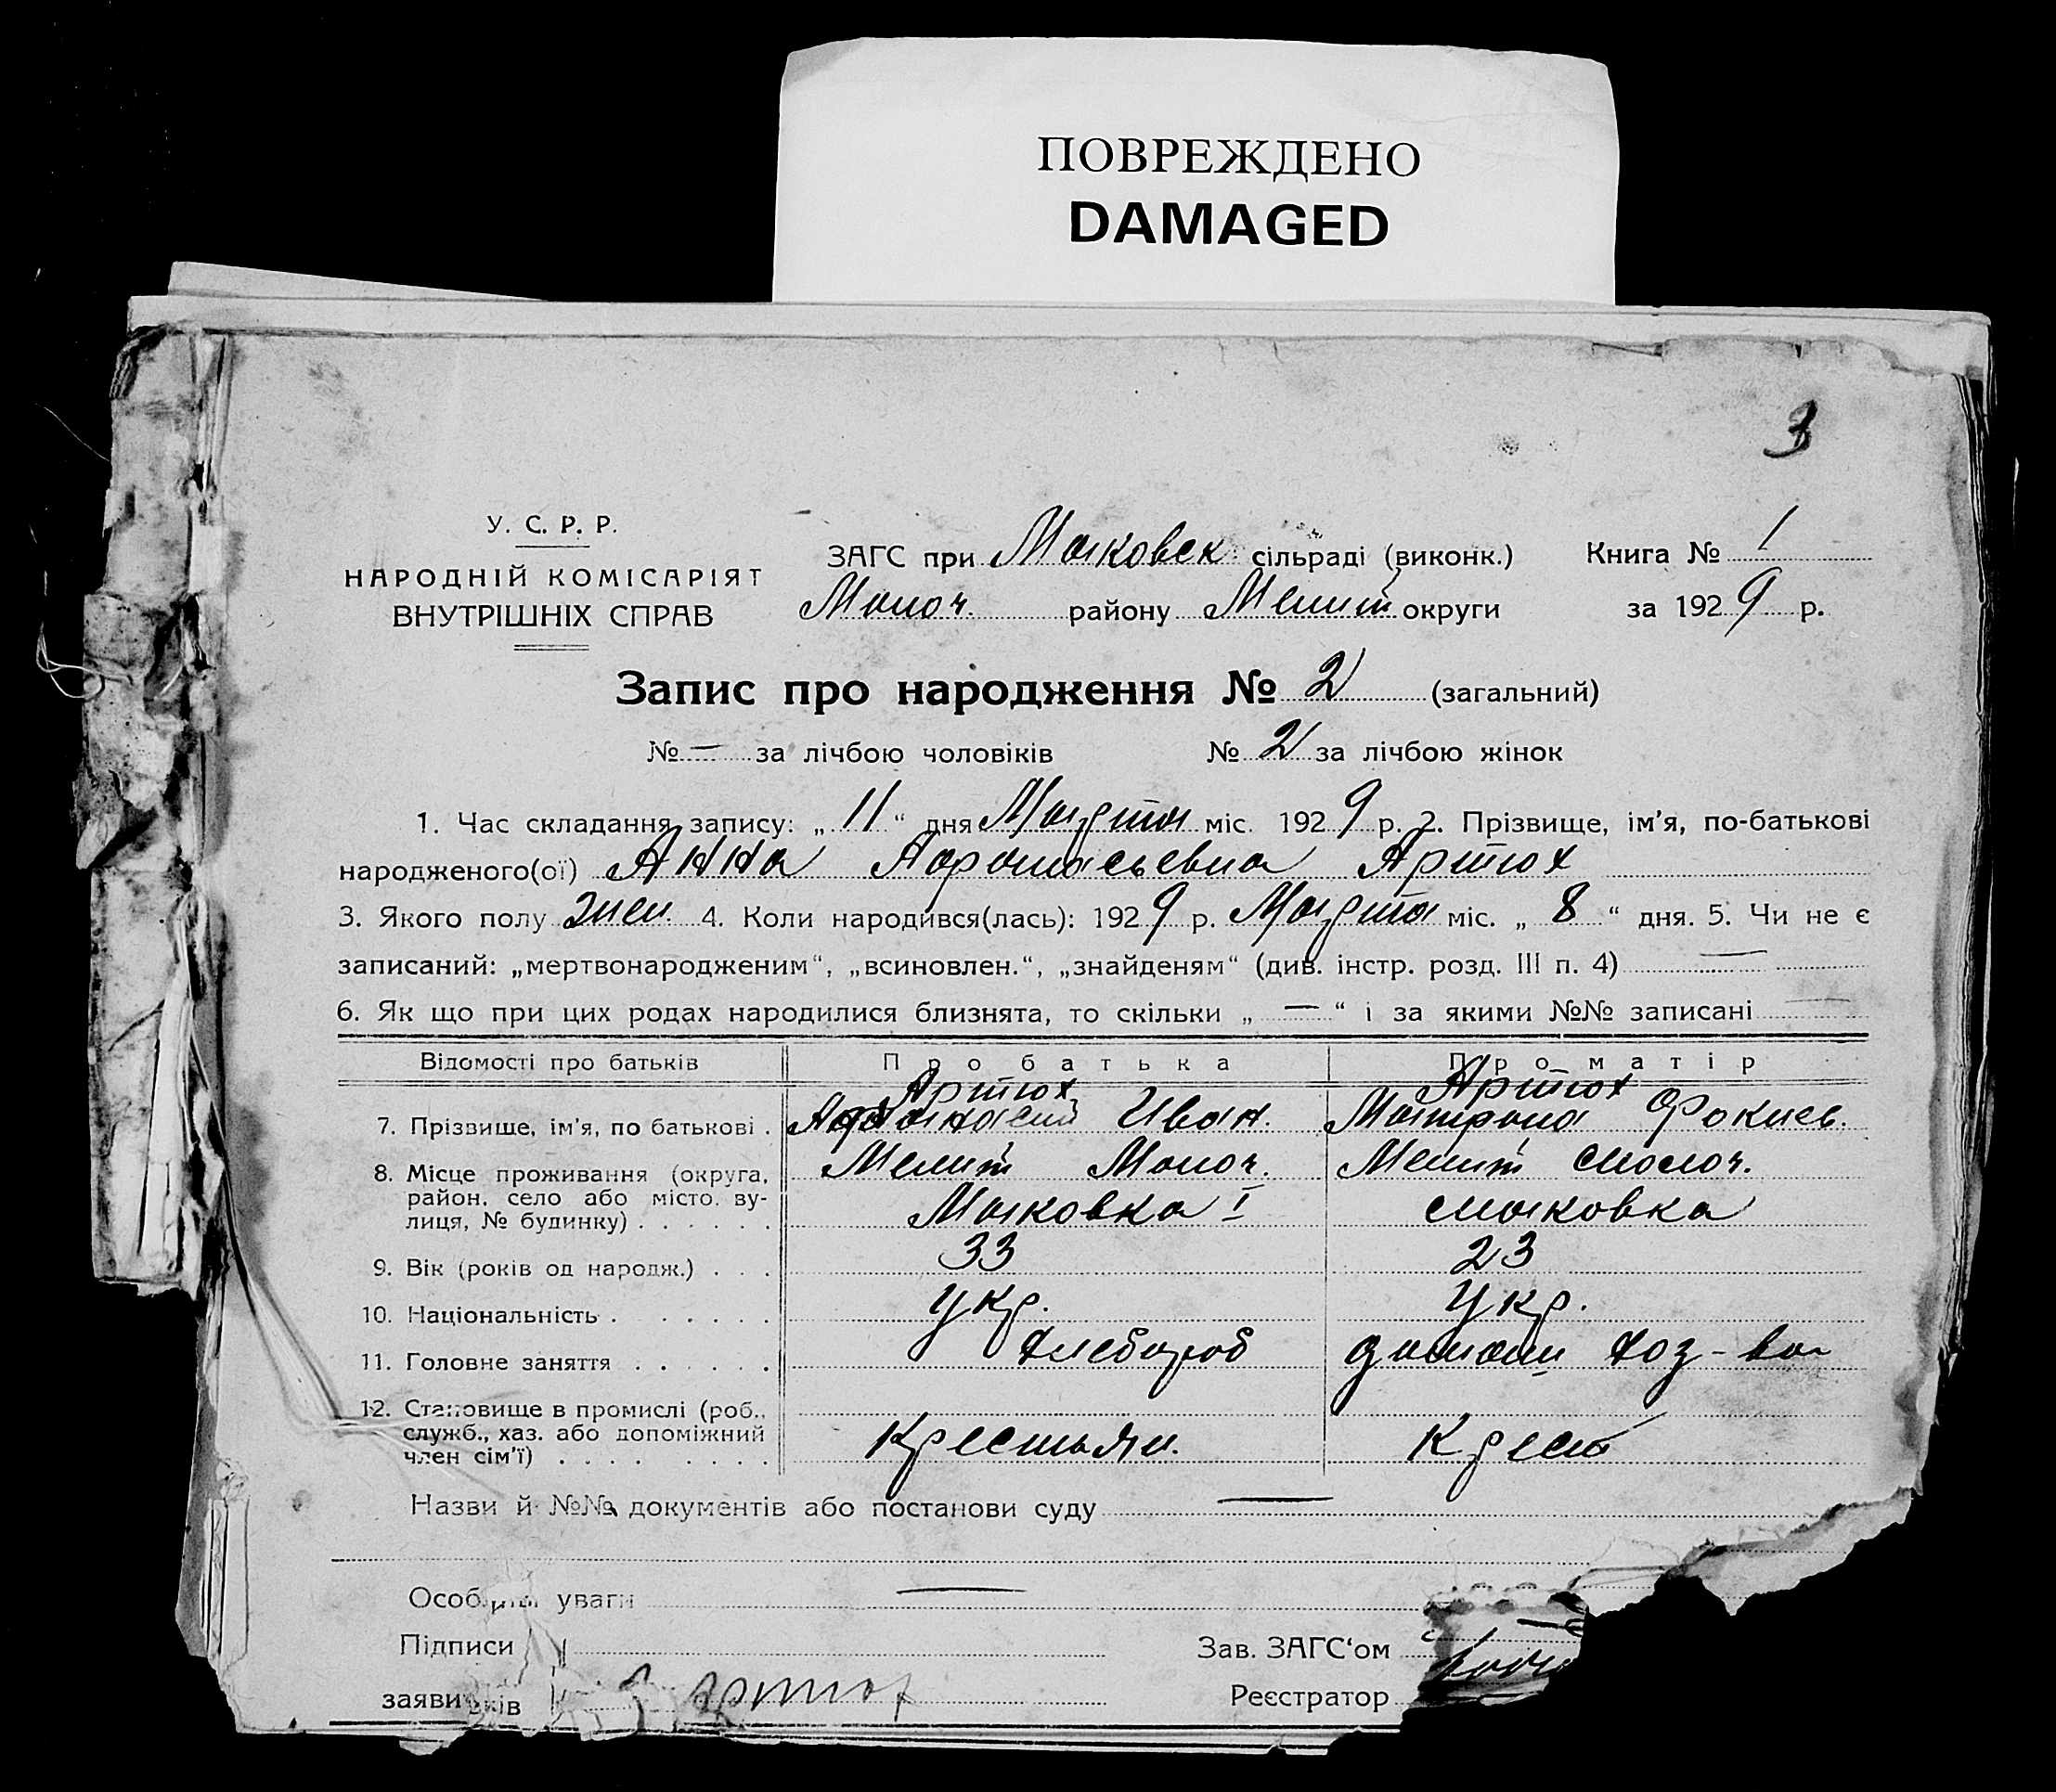 ПОВРЕЖДЕНО
DAMAGED
3
У. С. Р. Р.
НАРОДНІЙ КОМІСАРІЯТ
ВНУТРІШНІХ СПРАВ
ЗАГС при Маковск сільраді (виконк.) Книга № 1
Молоч. району Мелит округи за 1929 р.
Запис про народження № 2 (загальний)
№ — за лічбою чоловіків № 2 за лічбою жінок
1. Час складання запису: „11“ дня Марта міс. 1929 р. 2. Прізвище, ім'я, по-батькові
народженого(ої) Анна Афонасьевна Артюх
3. Якого полу жен. 4. Коли народився(лась): 1929 р. Марта міс. „8“ дня. 5. Чи не є
записаний: „мертвонародженим“, „всиновлен.“, „знайденям“ (див. інстр. розд. III п. 4) —
6. Як що при цих родах народилися близнята, то скільки „—“ і за якими №№ записані —
Відомості про батьків Про батька Про матір
Артюх Артюх
7. Прізвище, ім'я, по батькові . Афанасий Иван. Матрона Фокиев.
8. Місце проживання (округа, Мелит Молоч. Мелит Молоч.
район, село або місто, ву-
лиця, № будинку) . . . . . . Маковка I Маковка
9. Вік (років од народж.) . . . 33 23
10. Національність . . . . . . . Укр. Укр.
11. Головне заняття . . . . . Хлебороб домаш хоз-во
12. Становище в промислі (роб.,
служб., хаз. або допоміжний Крестьян. Крест
член сім'ї) . . . . . . . .
Назви й №№ документів або постанови суду —
Особливі уваги —
Підписи Зав. ЗАГС'ом
заявників Артюх Реєстратор